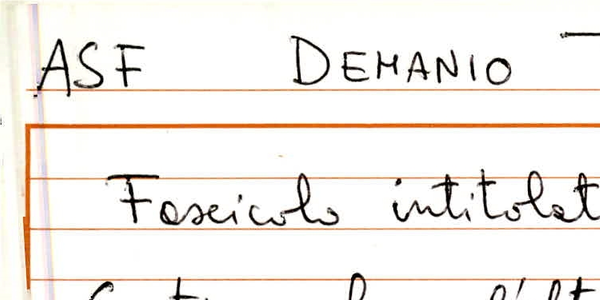 ASF DEMANIO
Fascicolo intitolat